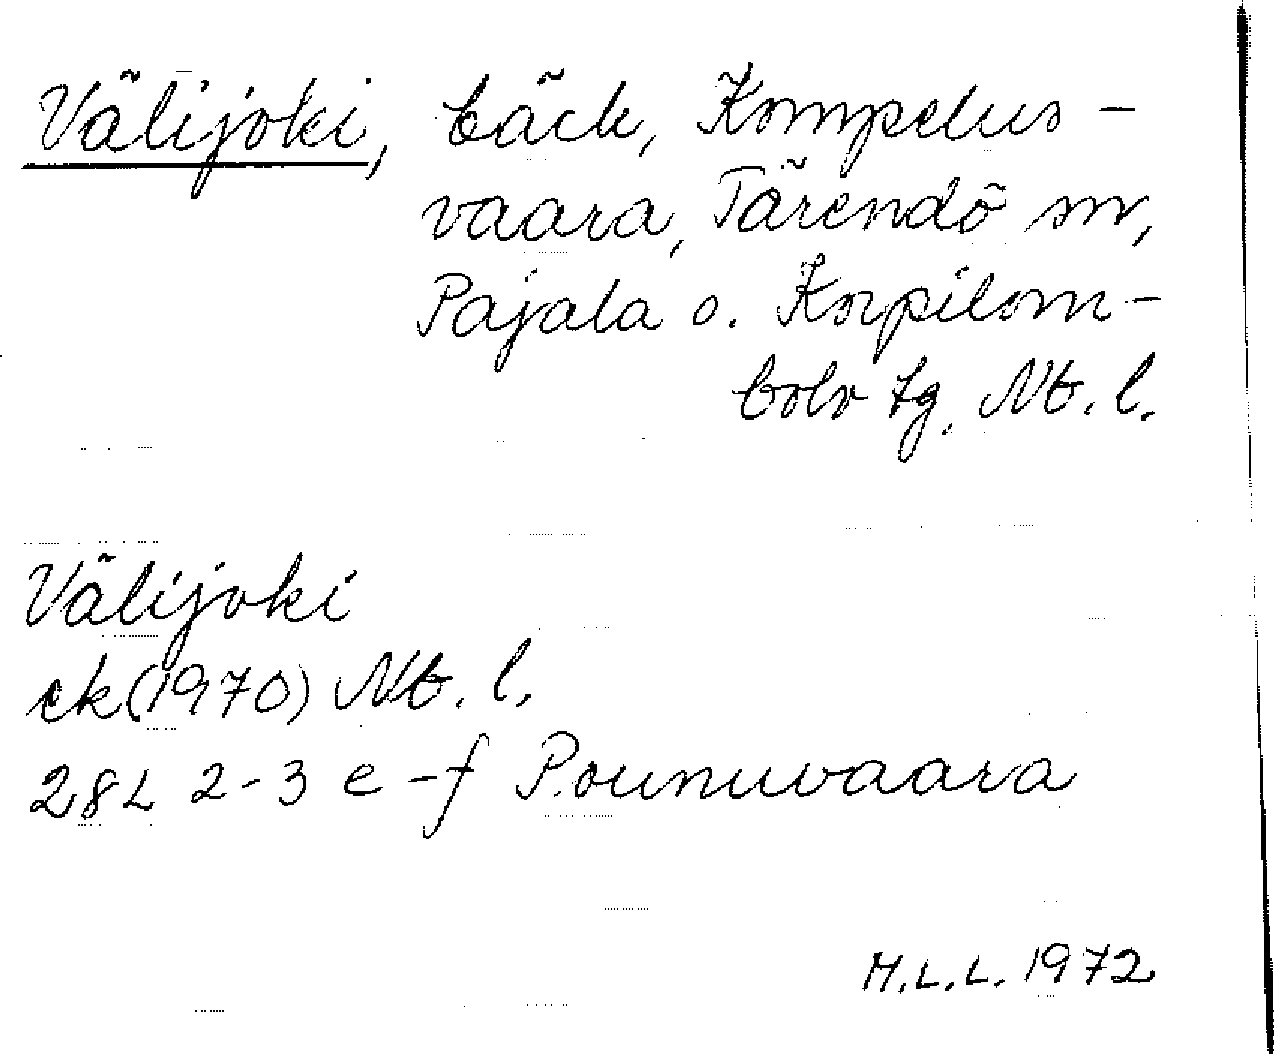 Välijoki, bäck, Kompelus-
vaara, Tärendö sn,
Pajala o. Korpilom-
bolo tg. Nb. l.
Välijoki
ek (1970) Nb. l.
28L 2-3 e-f Pounuvaara
M.L.L. 1972